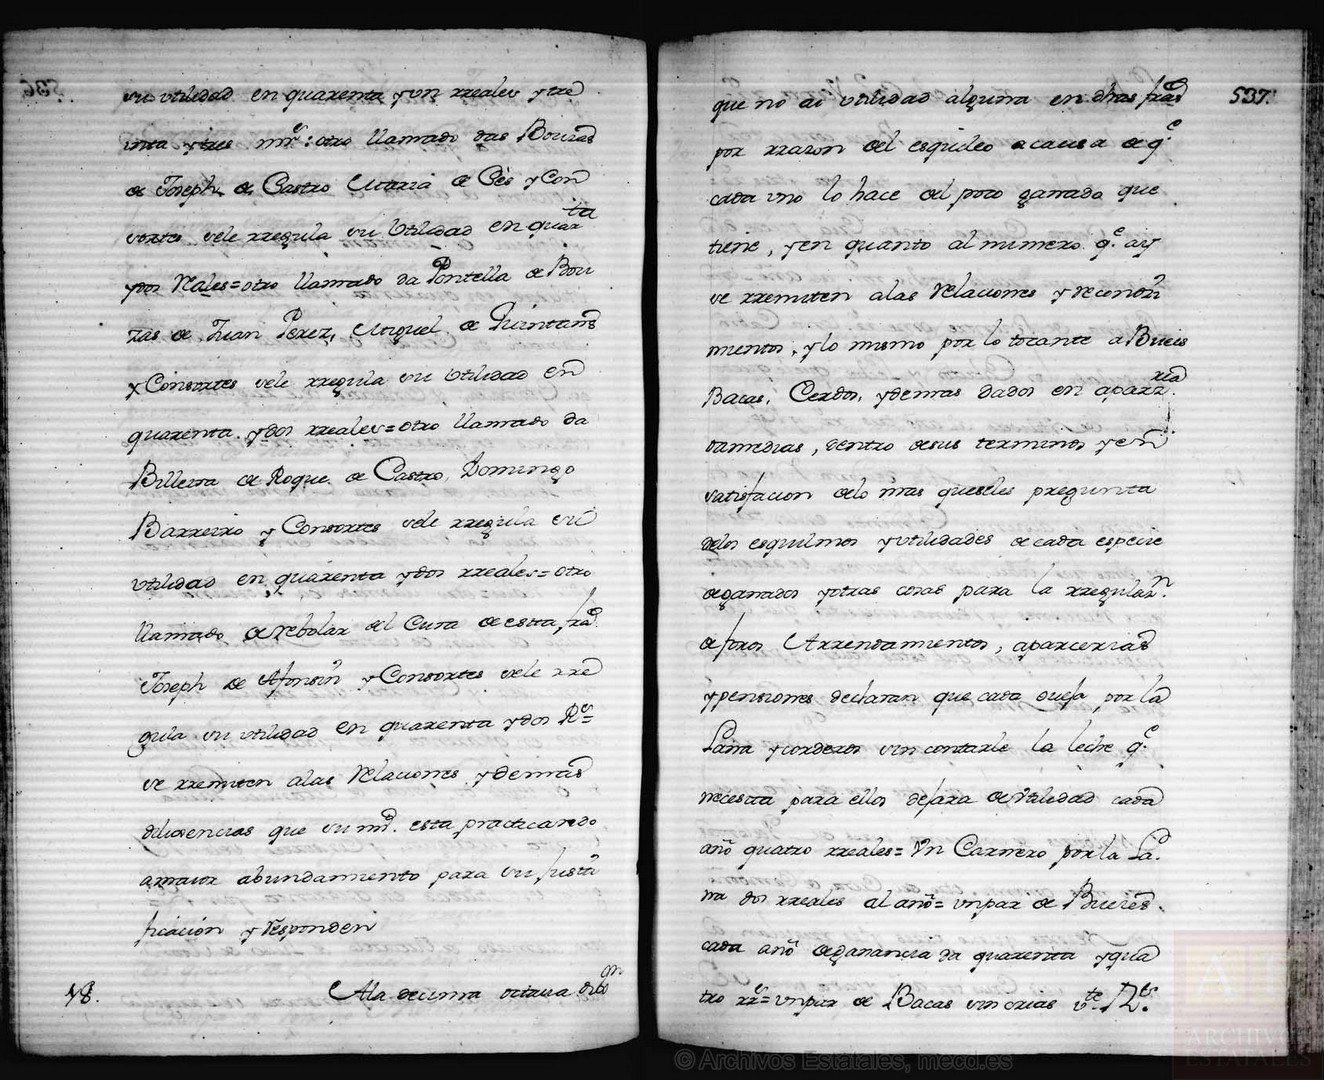 su utilidad en quarenta y un rreales y tre
inta y tres mrs: otro llamado das Bouzas
de Joseph de Castro Maria de Cés y Con
sortes sele rregula su Utilidad en quarta
y dos Reales=otro llamado da Pontella de Bou
zas de Juan Perez, Miguel de Quintans
y Consortes sele rregula su Utilidad en
quarenta y dos rreales=otro llamado da
Billeira de Roque de Castro, Domingo
Barreiro y Consortes sele rregula su
utilidad en quarenta y dos rreales=otro
llamado de rebolar del Cura de esta fra.
Joseph de Afonsin y Consortes sele rre
gula su utilidad en quarenta y dos Rs=
se rremiten alas Relaciones y demas
diligencias que su md. esta practicando
amaior abundamiento para su justi
ficacion y rresponden
18. Ala decima octaua dixon
537.
que no ai utilidad alguna en dhas fras
por rrazon del esquileo a causa de q.e
cada uno lo hace del poco ganado que
tiene, y en quanto al numero q.e ay
se rremiten alas Relaciones y reconozi
mientos, y lo mismo por lo tocante a Bueis
Bacas, Cerdos, y demas dados en aparzria
oamedias, dentro desus terminos y en
satisfacion delo mas queseles pregunta
delos esquilmos y utilidades de cada especie
de ganados y otras cosas para la rregular.n
de foros Arrendamientos, aparcerias
y pensiones declaran que cada oueja por la
Lana y corderos sin contarle la leche q.e
necesita para ellos dejara de Utilidad cada
año quatro rreales= Un Carnero por la La
na dos rreales al año= un par de Bueies
cada año de ganancia da quarenta y qua
tro rrs= un par de Bacas sin crias v.te Rs.
© Archivos Estatales, mecd.es
ARCHIVOS
ESTATALES